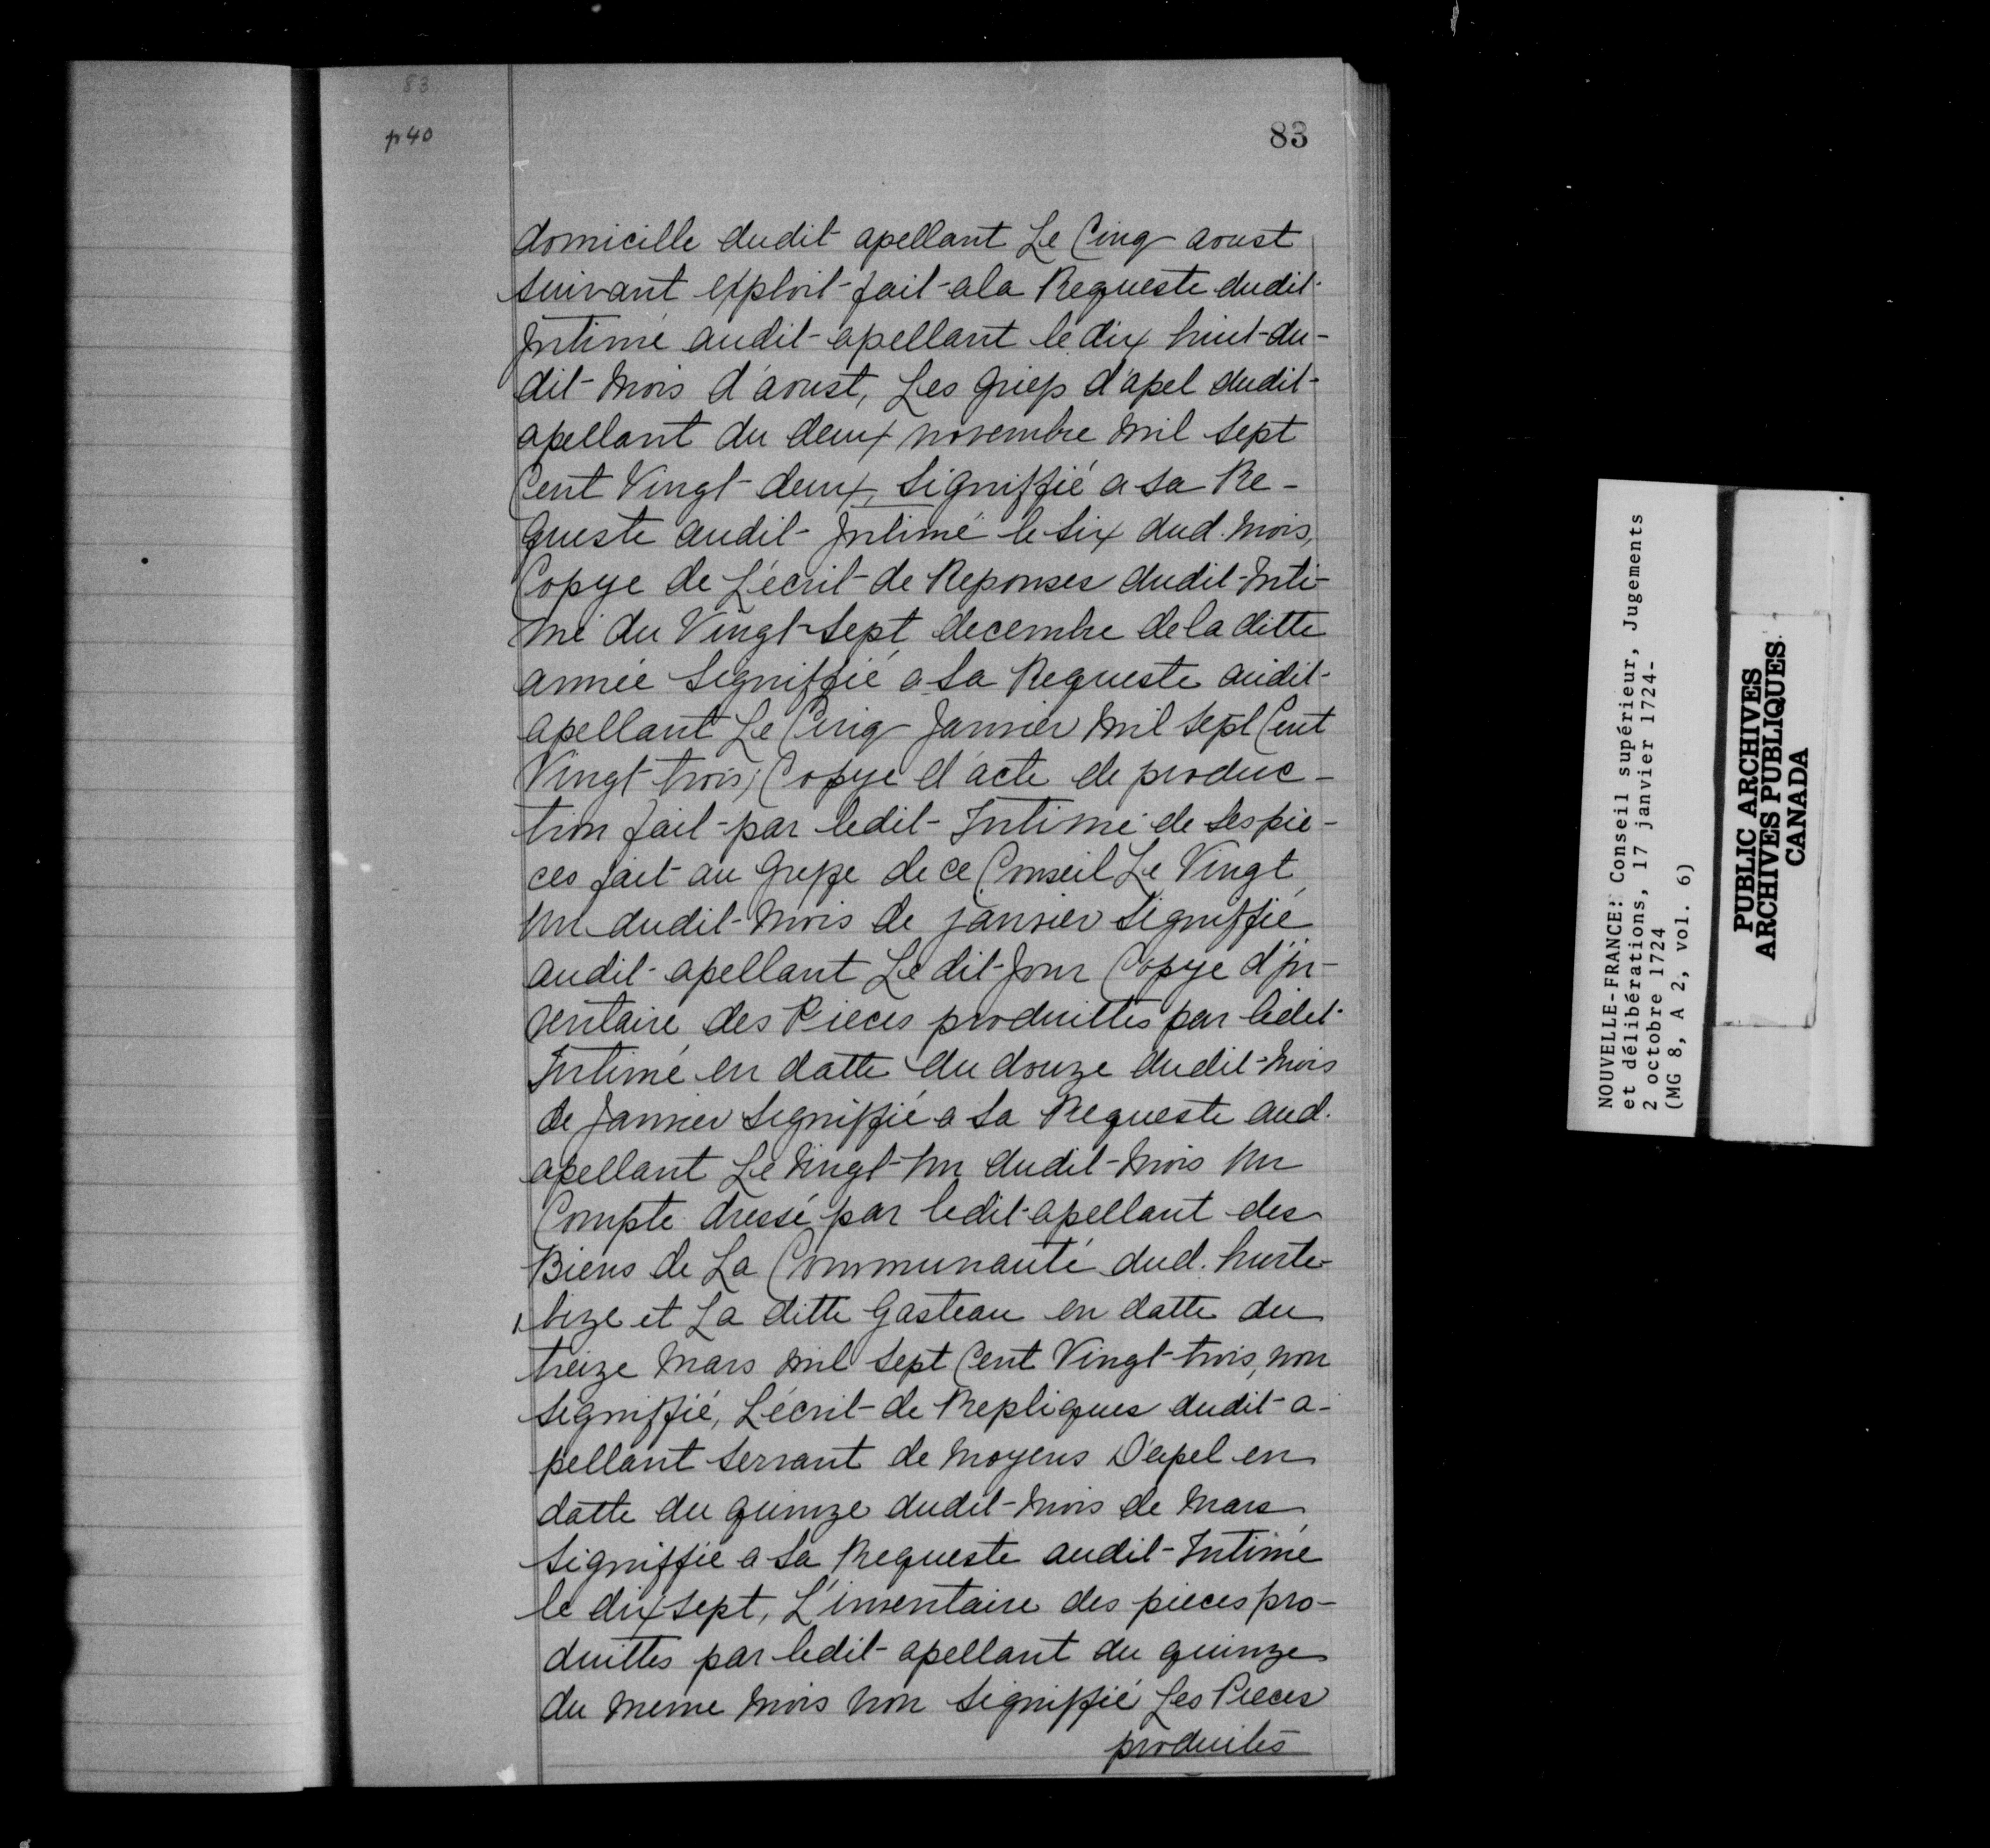 83
p 40
83
domicille dudit apellant Le Cinq aoust
suivant exploit fait ala Requeste dudit
Intimé audit apellant le dix huit du-
dit mois d'aoust, Les Griefs d'apel dudit
apellant du deux novembre mil sept
Cent Vingt deux, signiffié a sa Re-
queste audit Intimé le six dud. mois,
Copye de L'écrit de Reponses dudit Inti-
mé du Vingt sept decembre de la ditte
année signiffié a sa Requeste audit
apellant Le Cinq Janvier mil sept Cent
Vingt trois; Copye d'acte de produc-
tion fait par ledit Intimé de ses pie-
ces fait au greffe de ce Conseil Le Vingt
un dudit mois de janvier signiffié
audit apellant Le dit Jour Copye d'in-
ventaire des Pieces produittes par ledit
Intimé en datte du douze dudit mois
de Janvier signiffié a sa Requeste aud.
apellant Le Vingt un dudit mois un
Compte dressé par ledit apellant des
Biens de La Communauté dud. hurte-
bize et La ditte Gasteau en datte du
treize Mars mil sept Cent Vingt trois, non
signiffié, L'écrit de Repliques dudit a-
pellant servant de moyens D'apel en
datte du quinze dudit mois de Mars
signiffié a sa Requeste audit Intimé
le dix sept, L'inventaire des pieces pro-
duittes par ledit apellant du quinze
du meme mois non signiffié Les Pieces
produites
NOUVELLE-FRANCE: Conseil supérieur, Jugements
et délibérations, 17 janvier 1724-
2 octobre 1724
(MG 8, A 2, vol. 6)
PUBLIC ARCHIVES
ARCHIVES PUBLIQUES
CANADA